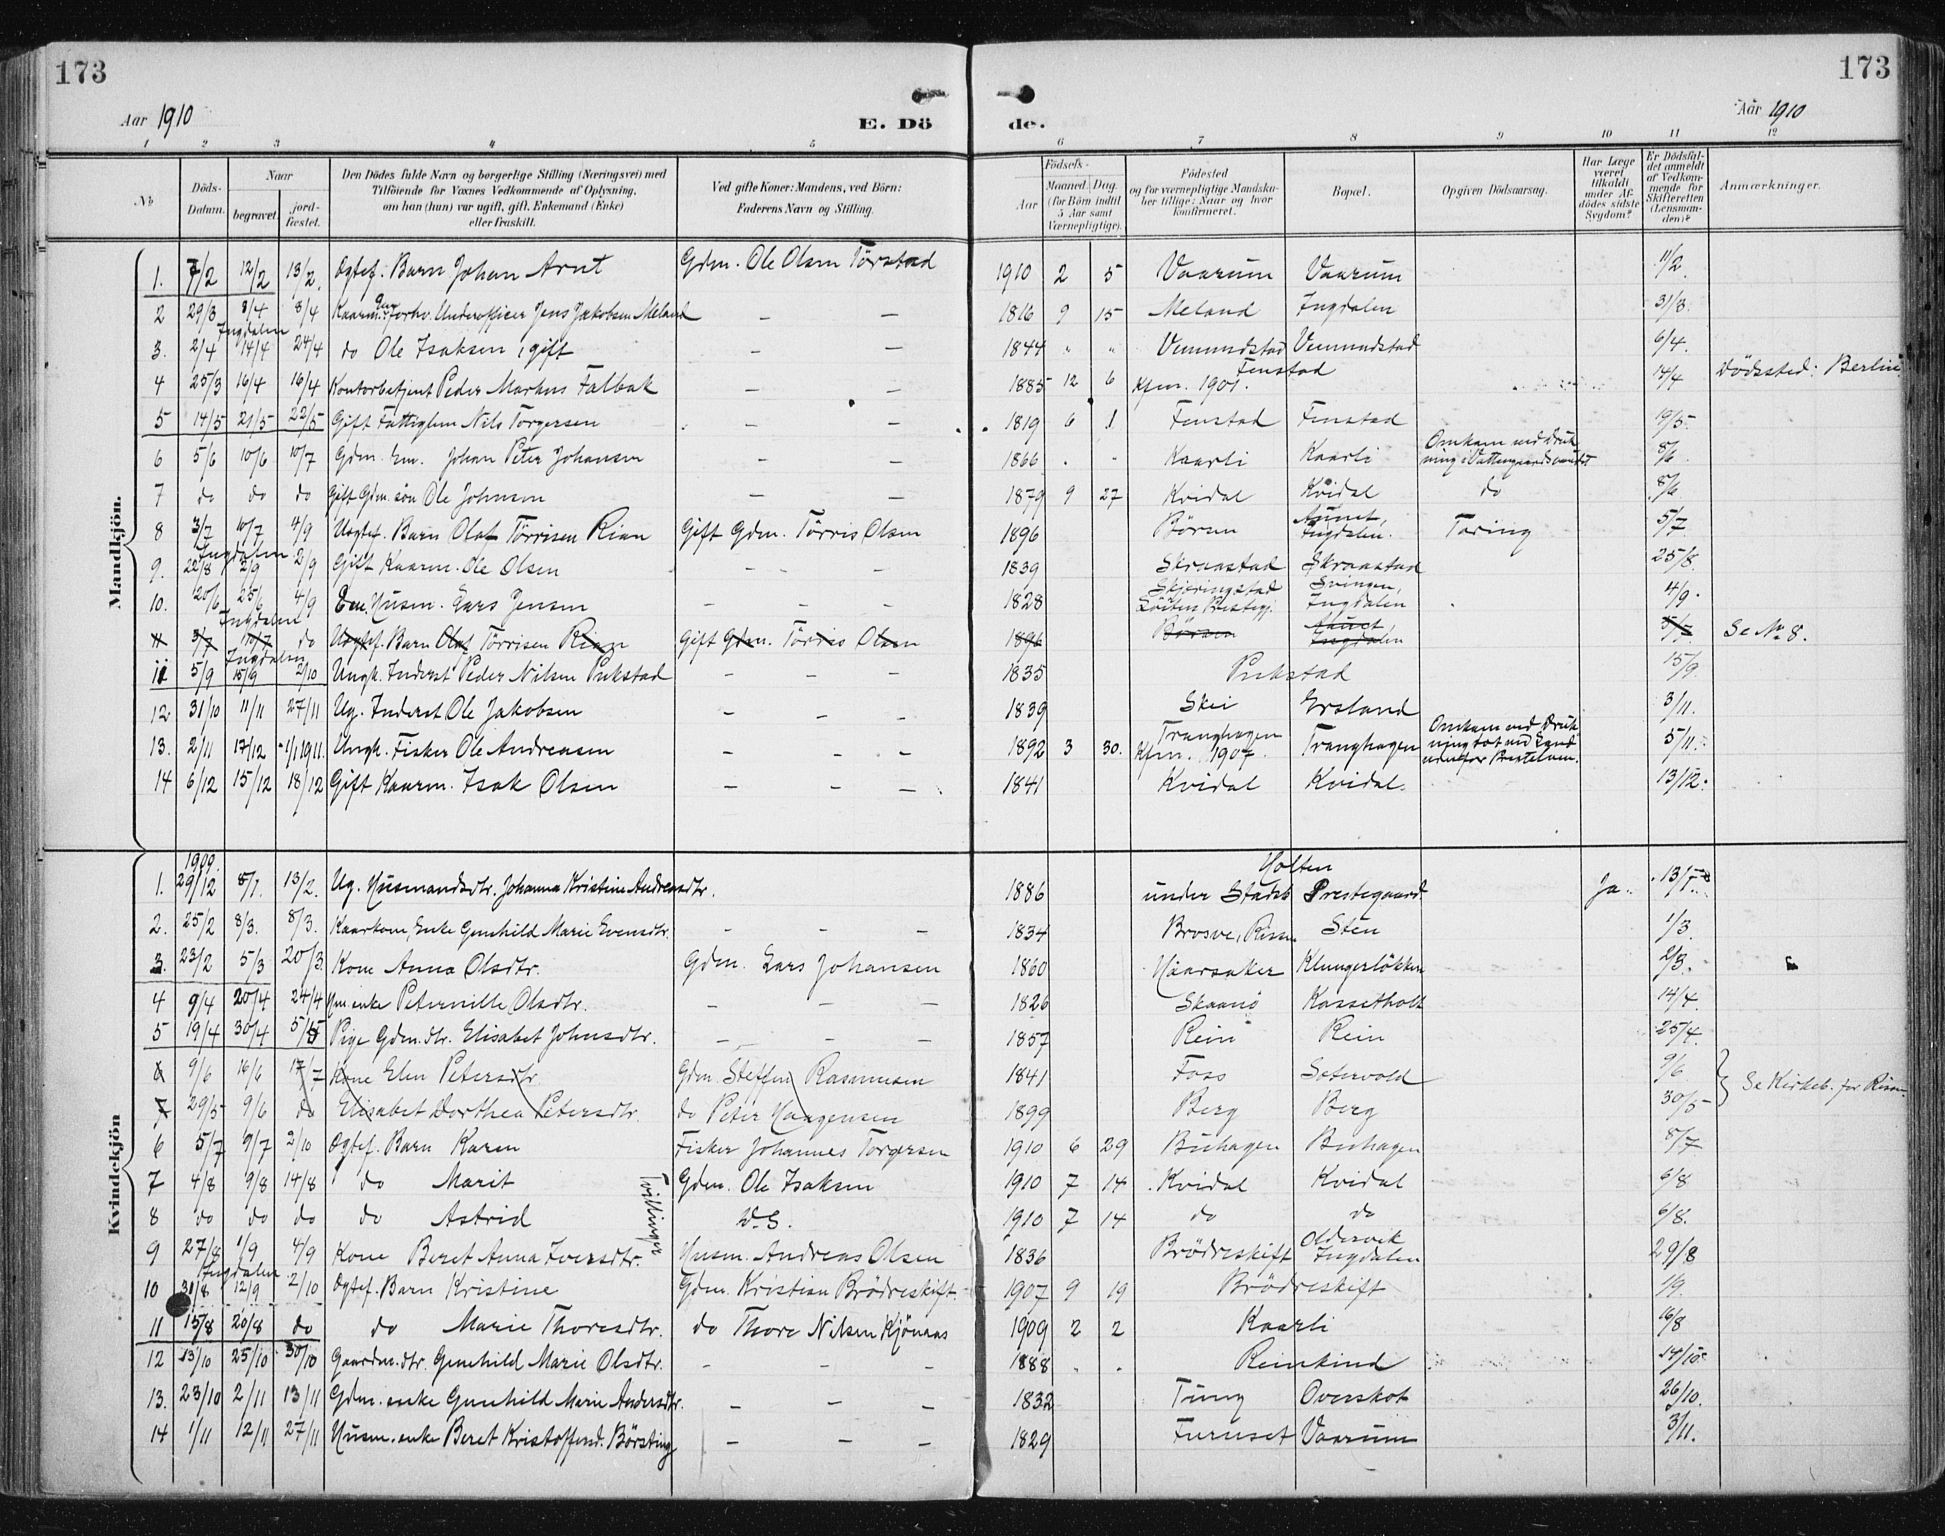 173
173
Aar 1910
E. Döde.
Aar 1910
1 2 3 4 5 6 7 8 9 10 11 12
No
Döds-Datum.
Naar
begravet.
jordfæstet.
Den Dödes fulde Navn og borgerlige Stilling (Næringsvei) med Tilföiende for Voxnes Vedkommende af Oplysning, om han (hun) var ugift, gift, Enkemand (Enke) eller fraskilt.
Ved gifte Koner: Mandens, ved Börn: Faderens Navn og Stilling.
Födsels-
Aar
Maaned. Dag.
(for Börn indtil 5 Aar samt Værnepligtige).
Födested og for værnepligtige Mandskaber tillige: Naar og hvor konfirmeret.
Bopæl.
Opgiven Dödsaarsag.
Har Læge været tilkaldt under Afdödes sidste Sygdom?
Er Dödsfaldet anmeldt af Vedkommende for Skifteretten (Lensmanden)?
Anmærkninger.
Mandkjön.
1. 7/2 12/2 13/2. Ogtef. Barn Johan Arnt Gdm. Ole Olsen Törstad 1910 2 5 Vaarum Vaarum 11/2.
2 29/3 8/4 8/4 Kaarm. Forhv. Underofficer Jens Jakobsen Meland – – 1816 9 15 Meland Ingdalen 31/3.
Ingdalen
3. 2/4 14/4 24/4 do Ole Isaksen, gift – – 1844 " " Vemundstad Vemundstad 6/4.
4 25/3 16/4 16/4 Kontorbetjent Peder Markus Falbak – – 1885 12 6 Kfm. 1901. Fenstad 14/4 Dödssted: Berlin.
5 14/5 21/5 22/5 Gift Fattiglem Nils Torgersen – – 1819 6 1 Fenstad Fenstad 19/5.
6 5/6 10/6 10/7 Gdm. Em. Johan Peter Johansen – – 1866 . " Kaarli Kaarli Omkom ved Drukning i 8/6.
7 do do do Gift Gdm. sön Ole Johnsen – – 1879 9 27 Kvidal Kvidal do 8/6.
8 3/7 10/7 4/9 Uegtef. Barn Olaf Törrisen Rian Gift Gdm. Törris Olsen 1896 Börsen Aunet, Ingdalen. Tæring 5/7
Ingdalen
9. 22/8 2/9 2/9 Gift Kaarm. Ole Olsen – – – 1839 Skraastad Skraastad 25/8.
10. 20/6 25/6 4/9 Em. Husm. Lars Jensen – – – 1828 Skjeringstad Svingen, Ingdalen 14/9.
Ingdalen
11 3/7 10/7 do Uegtef. Barn Olaf Törrisen Rian Gift Gdm. Törris Olsen 1896 Börsen Aunet, Ingdalen 5/7 Se No 8.
Ingdalen
11 5/9 15/9 2/10 Ungk. Inderst Peder Nilsen Pukstad – – – 1835 Pukstad 15/9.
12 31/10 11/11 27/11 Ug. Inderst Ole Jakobsen – – – 1839 Skei Ersland 3/11.
13. 2/11 17/12 1/1 1911. Ungk. Fisker Ole Andreasen – – – 1892 3 30. Tranghagen Kfm. 1907. Tranghagen Omkom ved Drukning 5/11.
14 6/12 15/12 18/12 Gift Kaarm. Isak Olsen – – – 1841 Kvidal Kvidal. 13/12.
Kvindekjön
1. 1909. 29/12 8/1. 13/2. Ug. Husmandsdtr. Johanna Kristine Andreasdtr. 1886 Holten under Stads Prestegaard. Ja. 13/1.
2. 25/2 8/3. 8/3. Kaarkone, Enke Gunhild Marie Evensdtr. – – – 1834 Brosve, Rissa Sten 1/3.
3. 23/2 5/3 20/3. Kone Anna Olsdtr. Gdm. Lars Johansen 1860 Haarsaker Klungerlökken 2/3.
4 9/4 20/4 24/4 Hm. enke Peternille Olsdtr. – – – 1826 Skaanö Kassetholt 14/4.
5 19/4 30/4 5/5 Pige Gdm. dtr. Elisabet Johnsdtr. – – – 1857 Rein Rein 25/4.
6 9/6 16/6 17/7 Kone Elen Petersdtr. Gdm. Steffen Rasmusen 1841 Foss Setervold 9/6. Se Kirkeb. for Rissa.
7 29/5 9/6 do Elisabet Dorthea Petersdtr. do Peter Haagensen 1899 Berg Berg 30/5
6 5/7 9/7 2/10 Ogtef. Barn Karen Fisker Johannes Torgersen 1910 6 29 Buhagen Buhagen 8/7
7 4/8 9/8 14/8 do Marit Gdm. Ole Isaksen 1910 7 14 Kvidal Kvidal 6/8
Tvillinger
8 do do do do Astrid D.S. 1910 7 14 do do 6/8.
9 27/8 1/9 4/9 Kone Beret Anna Iversdtr. Husm. Andreas Olsen 1836 Brödreskift Oldervik Ingdalen 29/8
Ingdalen
10 31/8 12/9 2/10 Ogtef. Barn Kristine Gdm. Kristian Brödreskift. 1907 9 19 Brödreskift 1/9.
11 15/8 20/8 do do Marie Thoresdtr. do Thore Nilsen Kjönaas 1909 2 2 Kaarli 16/8
12 13/10 25/10 30/10 Gaardm. dtr. Gunhild Marie Olsdtr. – – – 1888 . . Reinkind 14/10.
13. 23/10 2/11 13/11 Gdm. enke Gunhild Marie Andersdtr. – – – 1832 Tung Overskot 26/10.
14 1/11 12/11 27/11 Husm. enke Beret Kristoffersd. Börsting – – – 1829 Furuset Vaarum 3/11.